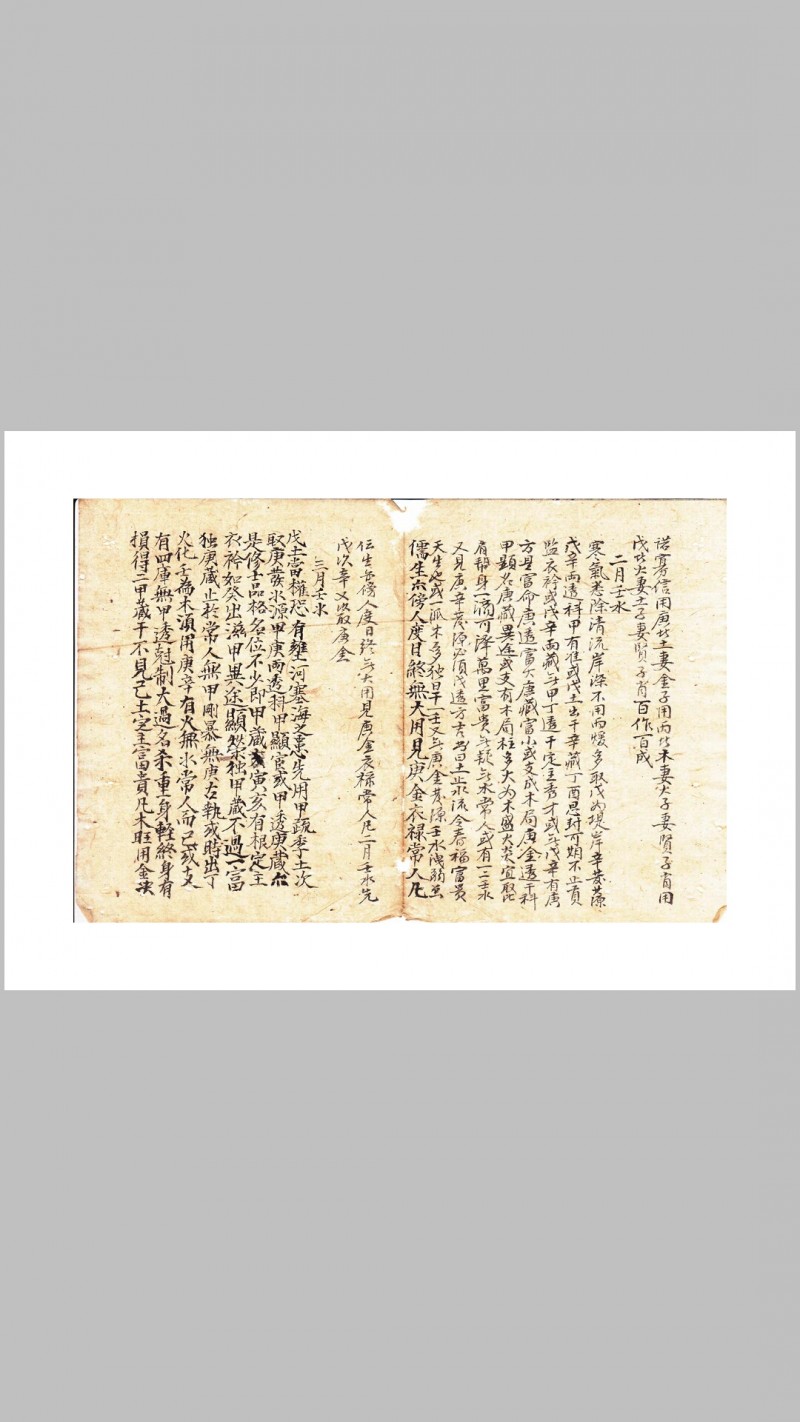 諾寡信用庚
土妻金子用丙
木妻火子妻賢子肖用
戊
火妻土子妻賢子肖百作百成
二月壬水
寒氣悉除清流岸深不用丙煖多取戊
堤岸辛發源
戊辛兩透科甲有准或戊土出干辛藏丁酉恩封可期不止貢
監衣衿或戊辛兩藏
甲丁透干定主秀才或
戊辛有庚
方是富命庚透富大庚藏富小或支成木局庚金透干科
甲顯
庚藏異途或支有木局柱多火為木盛火炎宜取比
肩幫身一滴可澤萬里富貴
疑
水常人或有一二壬水
又見庚辛發源必須戊透方
土止水流今春福富貴
天生也或一派木多
庚金發源壬水洩弱
儒生亦傍人度日終無大用見庚金衣祿常人凡
任生
傍人度日終
大用見庚金衣祿常人凡二月壬水先
戊次辛又次取庚金
三月壬水
戊土當權恐有壅河塞海之患先用甲疏季土次
取庚發水源甲庚兩透科甲顯宦或甲透庚藏
是修士品格名位不少即甲藏寅亥有根定主
衣衿如癸出滋甲異途顯
獨甲藏不過一富
獨庚藏止於常人無甲剛暴無庚古執或時出丁
火化壬為木須用庚辛有火無水常人而已或支
有四庫無甲透尅制大過名杀重身輕終身有
損得二甲藏干不見己土定主富貴凡木旺用金